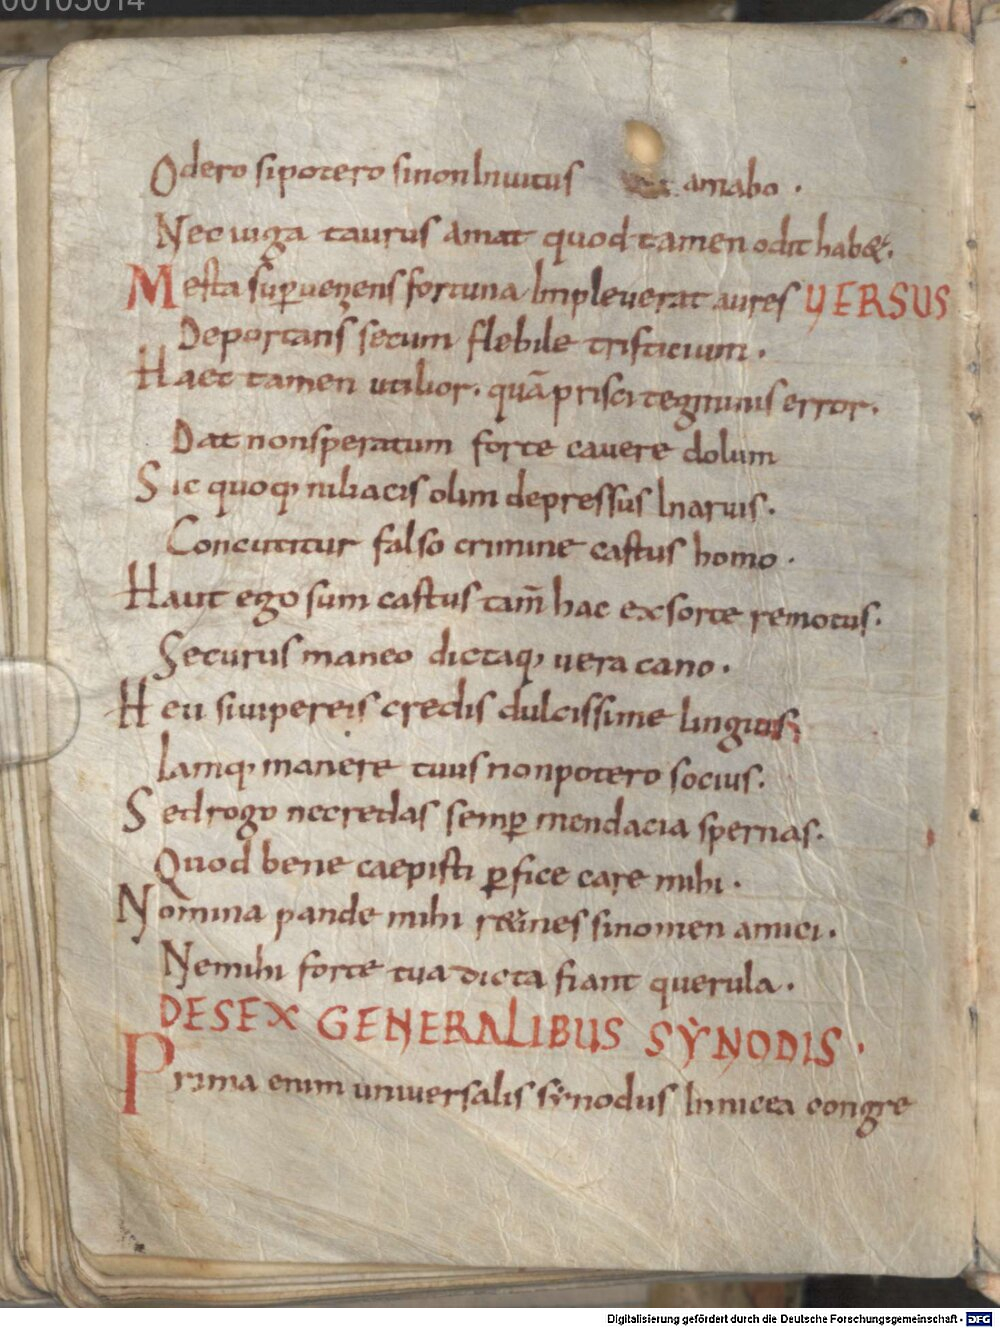 00105014
Odero si potero si non Inuitus amabo .
Nec iuga taurus amat quod tamen odit habet.
Mesta sup̄ueniens fortuna Impleuerat aures VERSUS
Deportans secum flebile tristicium .
Haec tamen utilior . quā prisci tegminis error .
Dat non speratum forte cauere dolum
Sic quoq; niliacis olim depressus In aruis .
Concutitur falso crimine castus homo .
Haut ego sum castus tam̄ hac ex sorte remotus .
Securus maneo dictaq; uera cano .
Heu si uipereis credis dulcissime linguis;
Iamq; manere tuus non potero socius .
Sed rogo ne credas semp̄ mendacia spernas .
Quod bene caepisti p̄fice care mihi .
Nomina pande mihi retines si nomen amici .
Ne mihi forte tua dicta fiant querula .
DE SEX GENERALIBUS SYNODIS .
Prima enim uniuersalis synodus In nicea congre
Digitalisierung gefördert durch die Deutsche Forschungsgemeinschaft - DFG